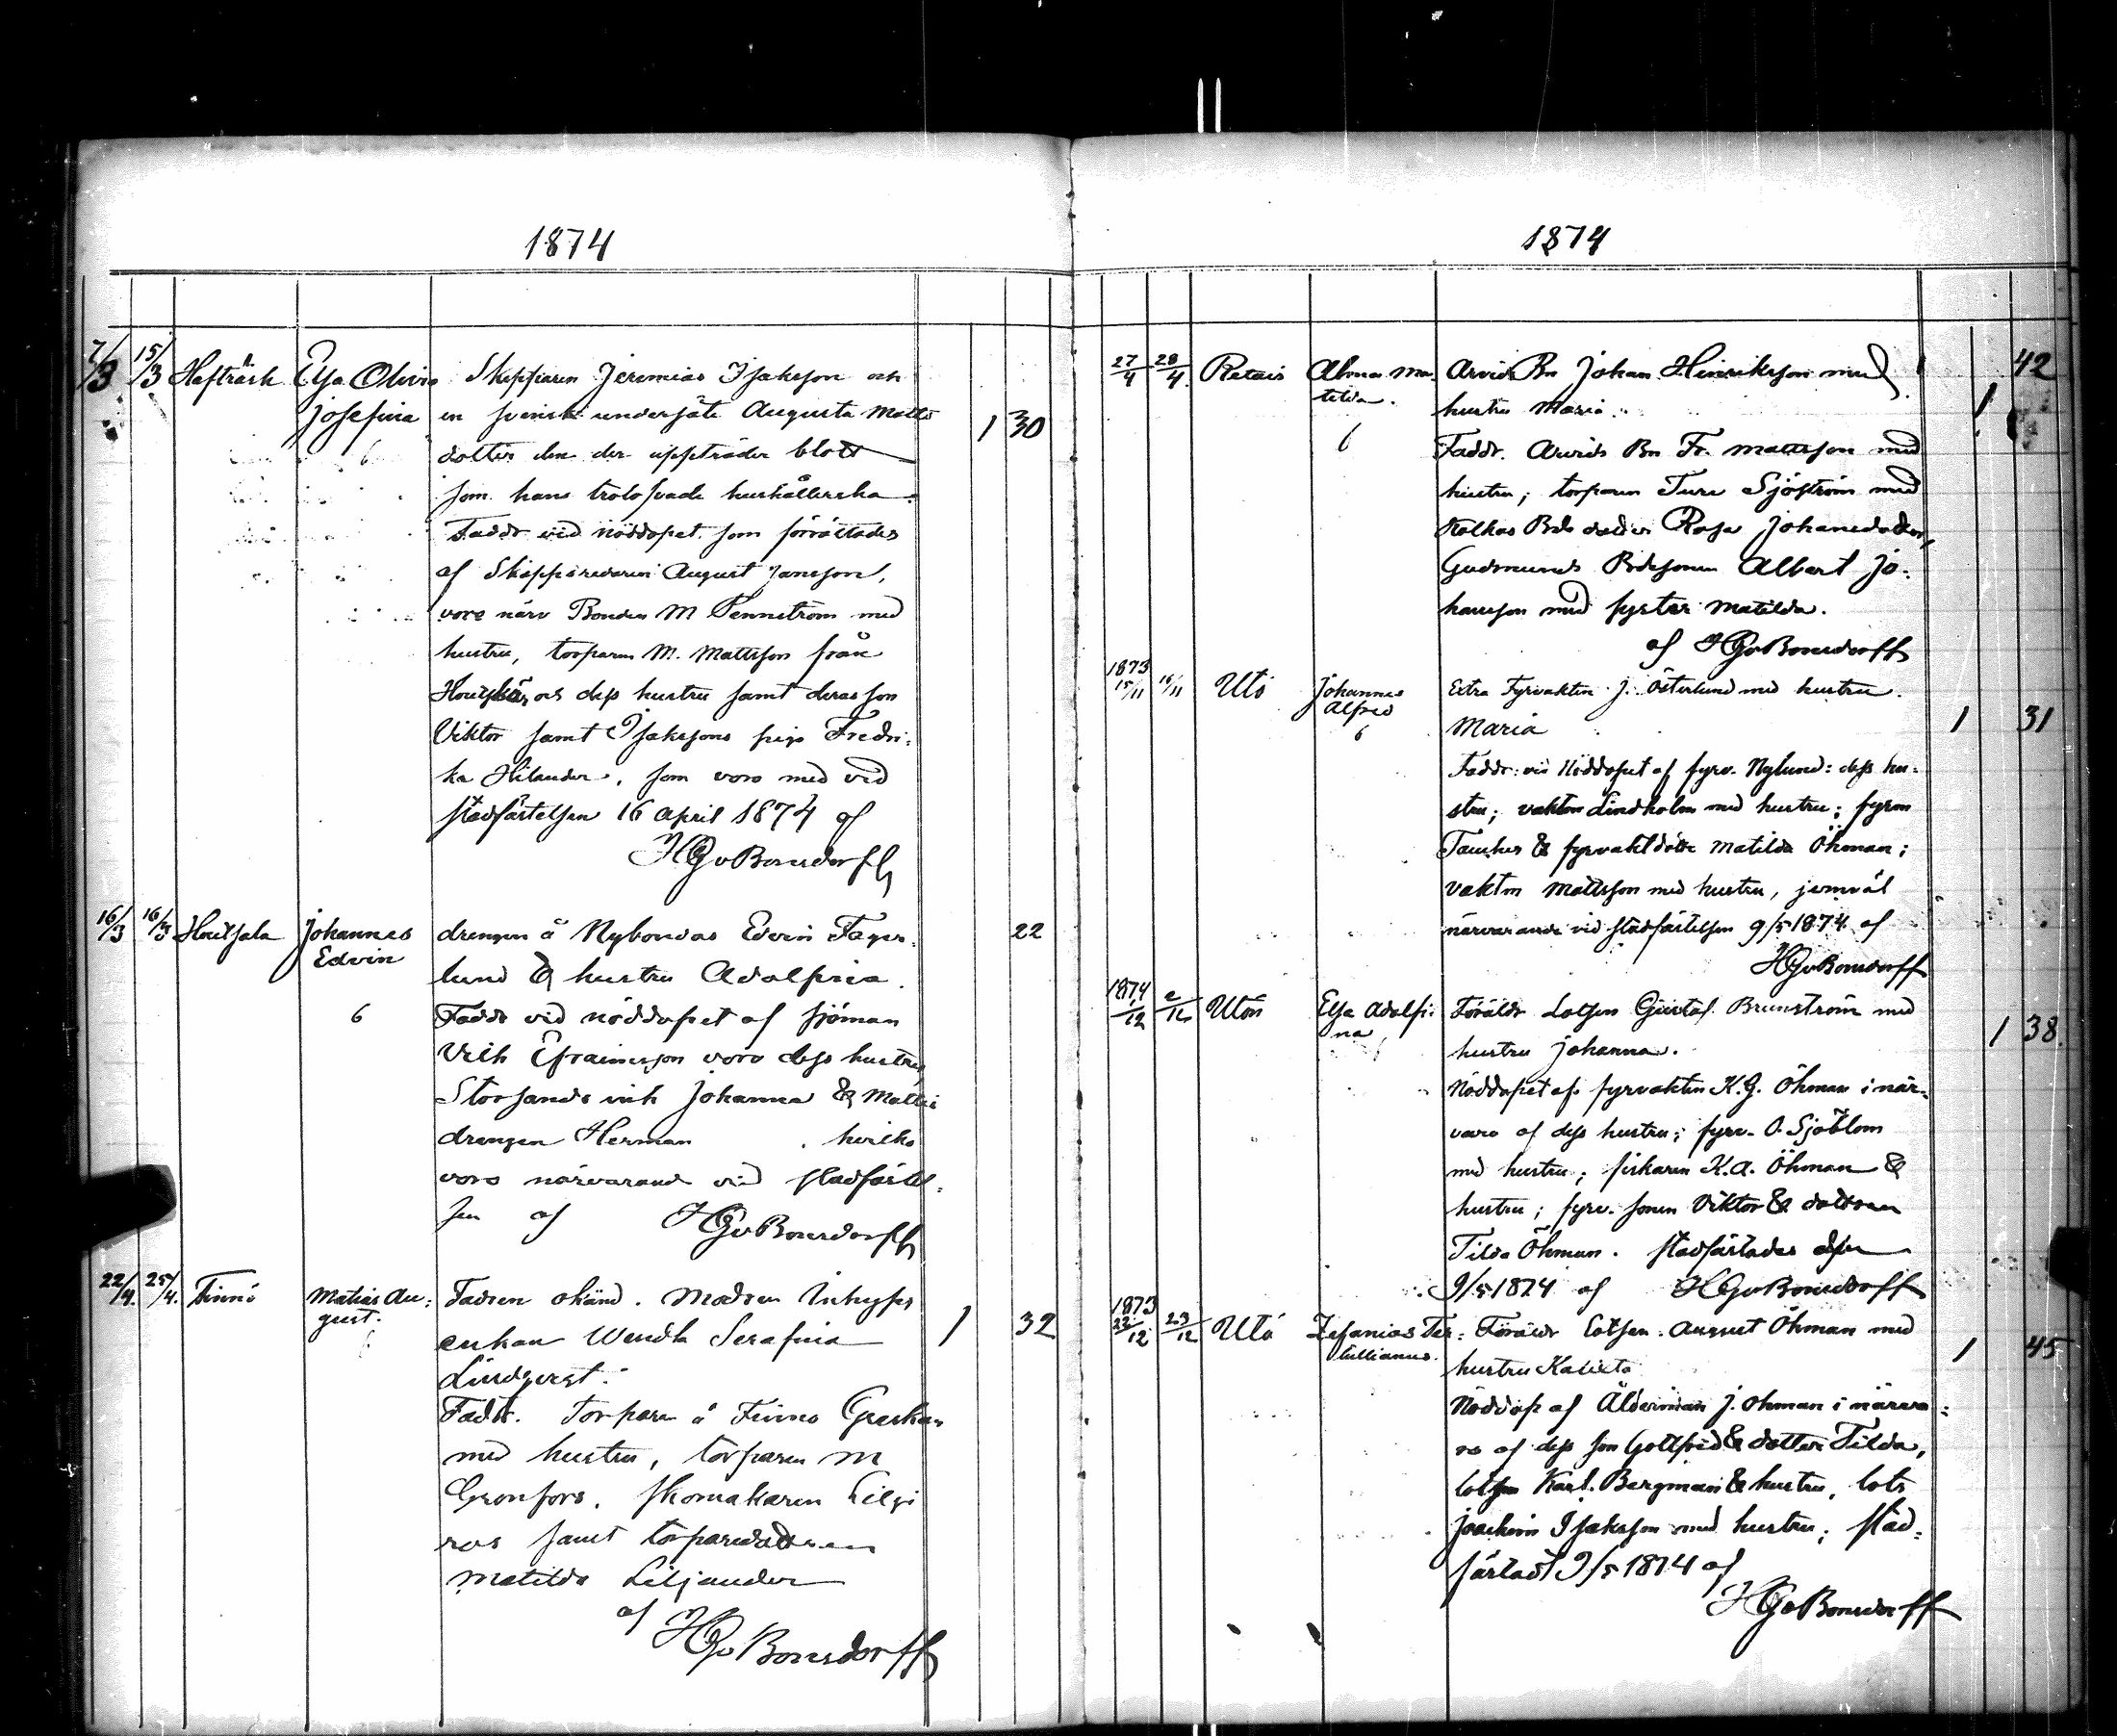 1874
7/3 15/3 Hafträsk Elsa Olivia Skepparen Jeremias Isaksson och
Josefina en svensk undersåte Augusta Matts
1 30
6 dotter den der uppträder blott
som hans trolofvade hushållerska.
Faddr vid nöddopet som förrättades
af Skeppsredaren August Jansson,
voro närv Bonden M Pennström med
hustru, torparen M. Mattsson från
Houtskär och dess hustru samt deras son
Viktor samt Isakssons piga Fredri-
ka Hilander, som voro med vid
stadfästelsen 16 April 1874 af
HGvBonsdorff
16/3 16/3 Houtsala Johannes drengen å Nybondas Edvin Fager- 22
Edvin lund & hustru Adolfina.
6 Faddr vid nöddopet af sjöman
Erik Efraimsson voro dess hustru,
Storsands Johanna & Matts
drengen Herman . hvilka
voro närvarande vid stadfästel-
sen af HGvBonsdorff
22/4. 25/4. Finnö Matias Au- Fadren okänd. Modren Inhyses
gust. enkan Wendla Serafina 1 32
6 Lindqvist.
Faddr. Torparen å Finnö
med hustru, torparen M
Gronfors, skomakaren
samt torparedottren
Matilda Liljander
af HGvBonsdorff
1874
27/4 28/4 Retais Alma Ma- Arvids Bn Johan Hinriksson med 42
tilda. hustru Maria. 1
6 Faddr. Arvids Bn Fr. Mattsson med
hustru; torparen Ture Sjöström med
Bds dotter Rosa Johansdotter,
Gudmunds Bdesonen Albert Jo-
hansson med syster Matilda.
af HGvBonsdorff
1873
15/11 16/11 Utö Johannes Extra Fyrvakten J. Österlund med hustru
Alfred Maria 1 31
6
Faddr: vid Nöddopet af fyrv. Nylund: dess hu-
stru; vakten Lindholm med hustru; fyrm
& fyrvaktdottr Matilda Öhman;
vakten Mattsson med hustru, jemväl
närvarande vid stadfästelsen 9/5 1874 af
HGvBonsdorff
1874
/12 2/12 Utön Elsa Adolfi- Föräldr Lotsen Gustaf Brunström med
na hustru Johanna. 1 38.
6
Nöddopet af fyrvakten K.G. Öhman i när-
varo af dess hustru; fyrv. O. Sjöblom
med hustru; fiskaren K.A. Öhman &
hustru; fyrv. sonen Viktor & dottren
Tilda Öhman. Stadfästades
9/5 1874 af HGvBonsdorff
1873
22/12 23/12 Utö Zefanias Ter- Föräldr Lotsen August Öhman med
tullianus. hustru 1 45
Nöddop af Ålderman J. Öhman i närva-
ro af dess son Gottfrid & dotter Tilda,
lotsen Karl Bergman & hustru, lots
Joachim Isaksson med hustru; stad-
fästadt 9/5 1874 af
HGvBonsdorff